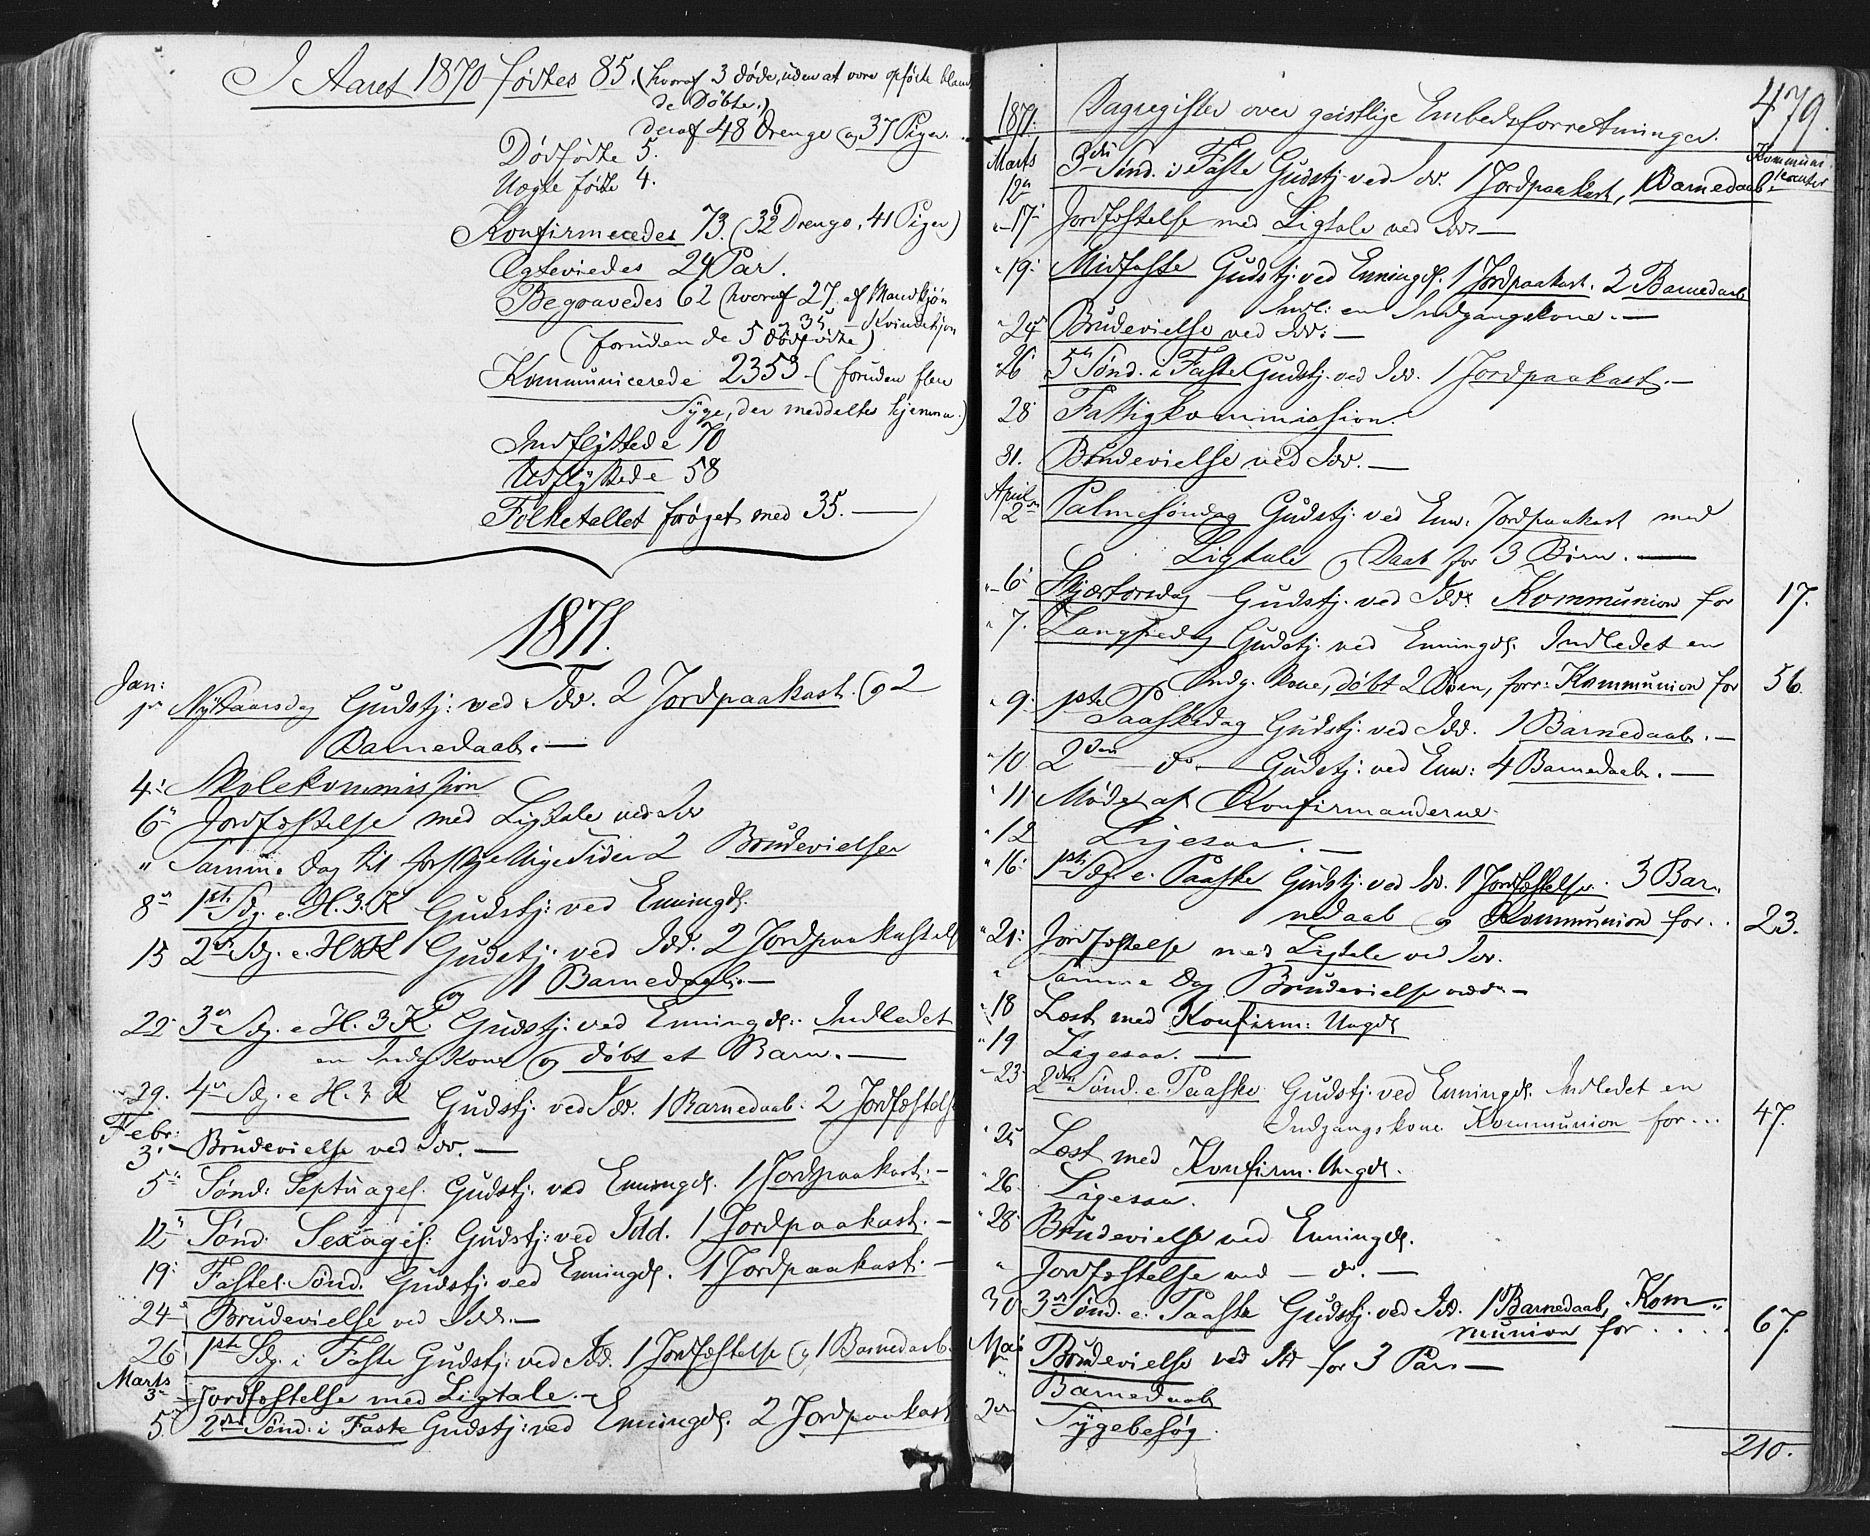 I Aaret 1870 fødtes 85. (hvoraf 3 døde, uden at være opførte bland
de Døbte.)
deraf 48 Drenge og 37 Piger.
Dødfødte 5.
Uægte fødte 4.
Konfirmeredes 73. (32 Drenge, 41 Piger)
Egteviedes 24 Par.
Begravedes 62 (hvoraf 27 af Mandkjøn
" 35 - Kvindekjøn
(foruden de 5 dødfødte)
Kommunicerede 2353 - (foruden flere
Syge, der meddeltes hjemme.)
Indflyttede 70
Udflyttede 58
Folketallet forøget med 35. —
1871.
Jan:
1ste Nytaarsdag Gudstj: ved Idd. 2 Jordpaakast. og 2
Barnedaab. —
4: Skolekommission
6" Jordfæstelse med Ligtale ved Idd
" Samme Dag til forskjellige Tider 2 Brudevielser
8" 1ste Sdg. e. H. 3. K Gudstj: ved Enningd.
15 2den Sdg. e. H. 3 K Gudstj: ved Idd. 2 Jordpaakastels
og 1 Barnedaab. —
22 3die Sdg. e H. 3 K. Gudstj: ved Enningd.: Indledet
en Indg Kone og døbt et Barn. —
29. 4de Sdg. e H. 3 K Gudstj. ved Idd. 1 Barnedaab. 2 Jordfæstels
Febr:
3. Brudevielse ved Idd. —
5 Sønd: Septuages. Gudstj. ved Enningd. 1 Jordpaakast. —
12" Sønd: Sexages: Gudstj: ved Idd. 1 Jordpaakast. —
19: Fastel. Sønd. Gudstj: ved Enningd. 1 Jordpaakast. —
24 Brudevielse ved Idd. —
26 1ste Sdg. i Faste Gudstj: ved Idd. 1 Jordfæstelse og 1 Barnedaab.
Marts
3 Jordfæstelse med Ligtale. —
5. 2den Sønd: i Faste Gudstj: ved Enningd. 2 Jordpaakast
479.
1871. Dagregister over geistlige Embedsforretninger.
Kommunikanter
Marts
12 3die Sønd. i Faste Gudstj. ved Idd. 1 Jordpaakast, 1 Barnedaab.
" 17 Jordfæstelse med Ligtale ved Idd. —
" 19: Midfaste Gudstj: ved Enningd. 1 Jordpaakast. 2 Barnedaab
Indl: en Indgangskone. —
" 24 Brudevielse ved Idd: —
" 26 5te Sønd. i Faste Gudstj. ved Idd. 1 Jordpaakast. —
28 Fattigkommission.
31. Brudevielse ved Idd. —
April
2den Palmesøndag Gudstj. ved Enn: Jordpaakast med
Ligtale og Daab for 3 Børn. —
" 6 Skjærtorsdag Gudstj. ved Idd: Kommunion for 17.
" 7. Langfredag Gudstj. ved Enningd. Indledet en
Indg. Kone, døbt 2 Børn, forr: Kommunion for 56.
" 9 1ste Paaskedag Gudstj. ved Idd. 1 Barnedaab. —
" 10 2den — do — Gudstj: ved Enn: 4 Barnedaab. —
" 11 Møde af Konfirmanderne.
" 12 Ligesaa. —
" 16: 1ste Sdg. e. Paaske Gudstj: ved Idd. 1 Jordfæstelse. 3 Bar„
nedaab og Kommunion for.. 23.
" 21: Jordfæstelse med Ligtale ved Idd.
" Samme Dag Brudevielse —
" 18 Læst med Konfirm: Ungd.
" 19 Ligesaa. —
" 23: 2den Sønd. e. Paaske Gudstj: ved Enningd. Indledet en
Indgangskone Kommunion for... 47.
" 25 Læst med Konfirm. Ungd.
" 26 Ligesaa.
" 28: Brudevielse ved Enningd.
" Jordfæstelse ved — do. —
30 3die Sønd. e. Paaske Gudstj. ved Idd. 1 Barnedaab, Kom„
munion for .... 67.
Mai
1ste Brudevielse ved Idd for 3 Par. —
" Barnedaab
2den Sygebesøg.
210.